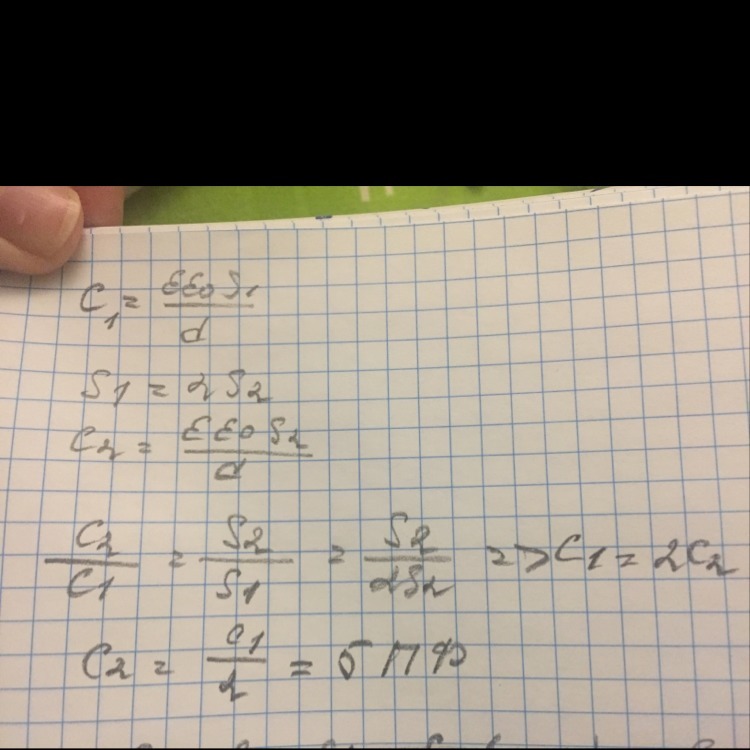 C₁ = εε₀S₁/d
S1 = 2S2
C2 = εε₀S2/d
C2/C1 = S2/S1 = S2/2S2 => C1 = 2C2
C2 = C1/2 = 5 ПФ